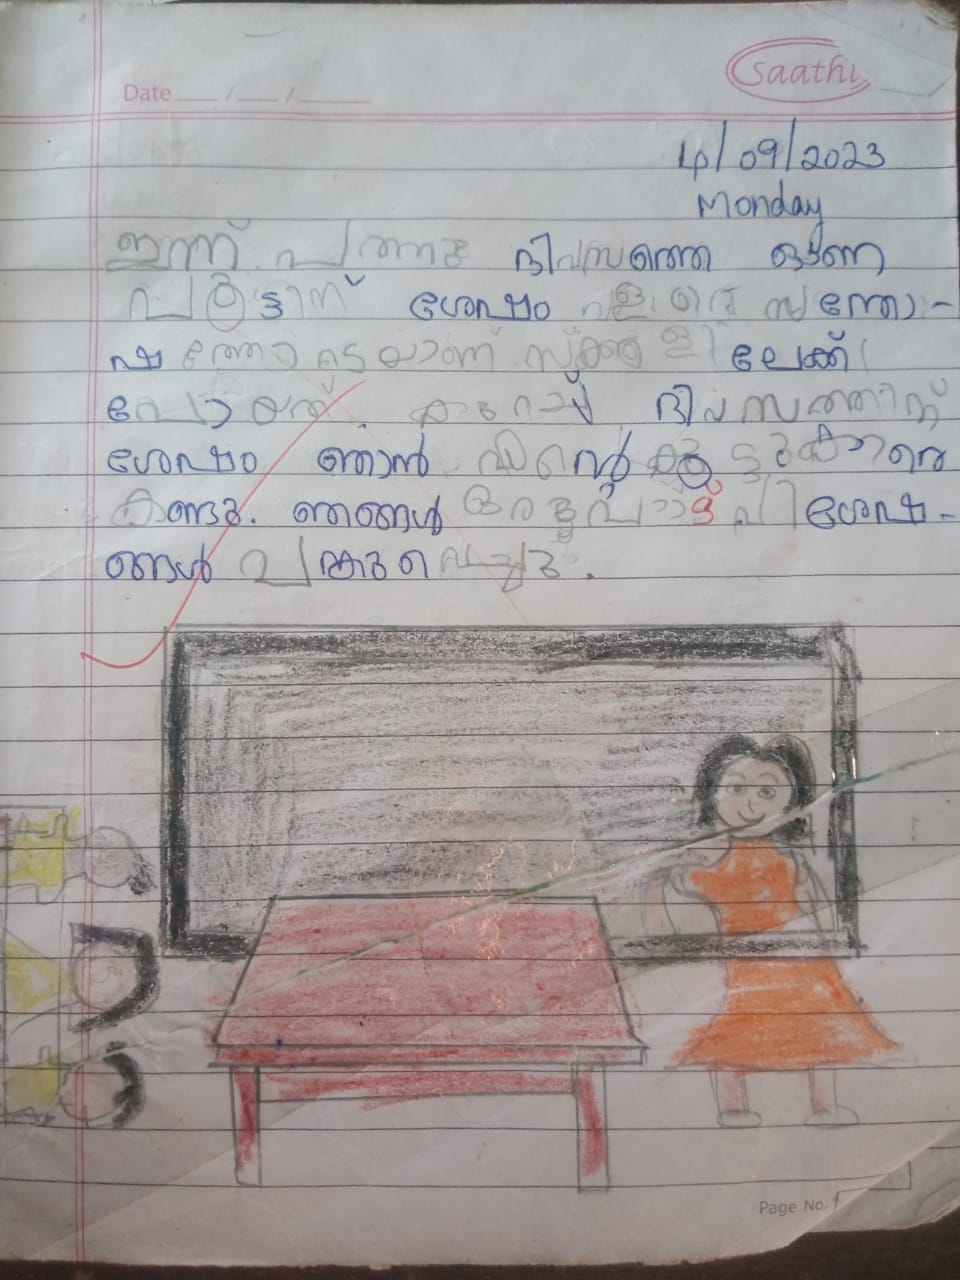 Date __/__/____
saathi
4/09/2023
Monday
ഇന്ന് പത്തു ദിവസത്തെ ഓണ
ശേഷം വളരെ സന്തോ-
ഷത്തോടെയാണ് സ്കൂളിലേക്ക്
പോയത്. കുറച്ച് ദിവസത്തിന്
ശേഷം ഞാൻ എന്റെ കൂട്ടുകാരെ
കണ്ടു. ഞങ്ങൾ ഒരുപാട് വിശേഷ-
ങ്ങൾ പങ്കുവെച്ചു.
Page No.